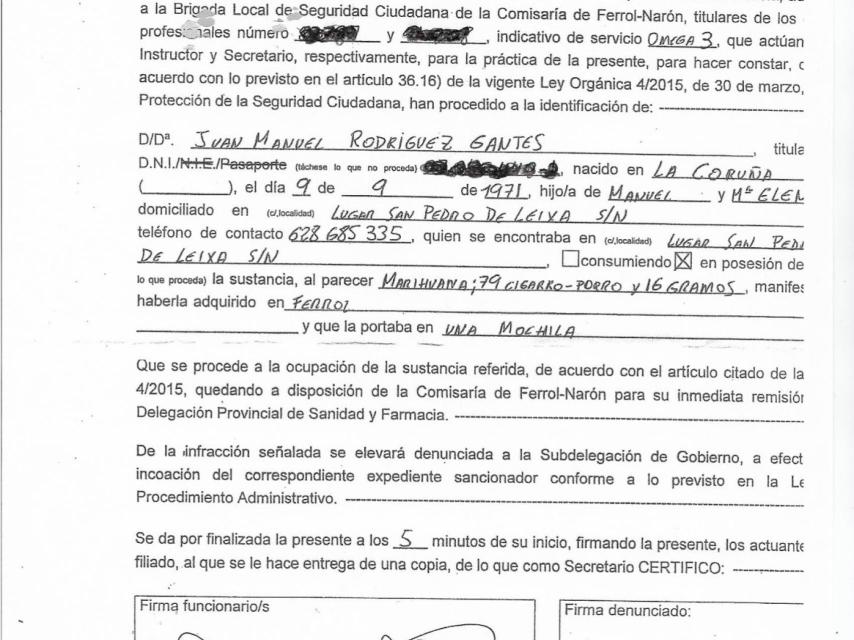 a la Brigada Local de Seguridad Ciudadana de la Comisaría de Ferrol-Narón, titulares de los
profesionales número y , indicativo de servicio OMEGA 3, que actúan
Instructor y Secretario, respectivamente, para la práctica de la presente, para hacer constar, c
acuerdo con lo previsto en el artículo 36.16) de la vigente Ley Orgánica 4/2015, de 30 de marzo,
Protección de la Seguridad Ciudadana, han procedido a la identificación de:
D/Dª. JUAN MANUEL RODRIGUEZ GANTES, titula
D.N.I./N.I.E./Pasaporte (táchese lo que no proceda) , nacido en LA CORUÑA
( ), el día 9 de 9 de 1971, hijo/a de MANUEL y Mª ELEN
domiciliado en (c/,localidad) LUGAR SAN PEDRO DE LEIXA S/N
teléfono de contacto 628 685 335, quien se encontraba en (c/,localidad) LUGAR SAN PED
DE LEIXA S/N , consumiendo en posesión de
lo que proceda) la sustancia, al parecer MARIHUANA; 79 CIGARRO-PORRO Y 16 GRAMOS, manifes
haberla adquirido en FERROL
y que la portaba en UNA MOCHILA
Que se procede a la ocupación de la sustancia referida, de acuerdo con el artículo citado de la
4/2015, quedando a disposición de la Comisaría de Ferrol-Narón para su inmediata remisión
Delegación Provincial de Sanidad y Farmacia.
De la infracción señalada se elevará denunciada a la Subdelegación de Gobierno, a efect
incoación del correspondiente expediente sancionador conforme a lo previsto en la Le
Procedimiento Administrativo.
Se da por finalizada la presente a los 5 minutos de su inicio, firmando la presente, los actuante
filiado, al que se le hace entrega de una copia, de lo que como Secretario CERTIFICO:
Firma funcionario/s
Firma denunciado: